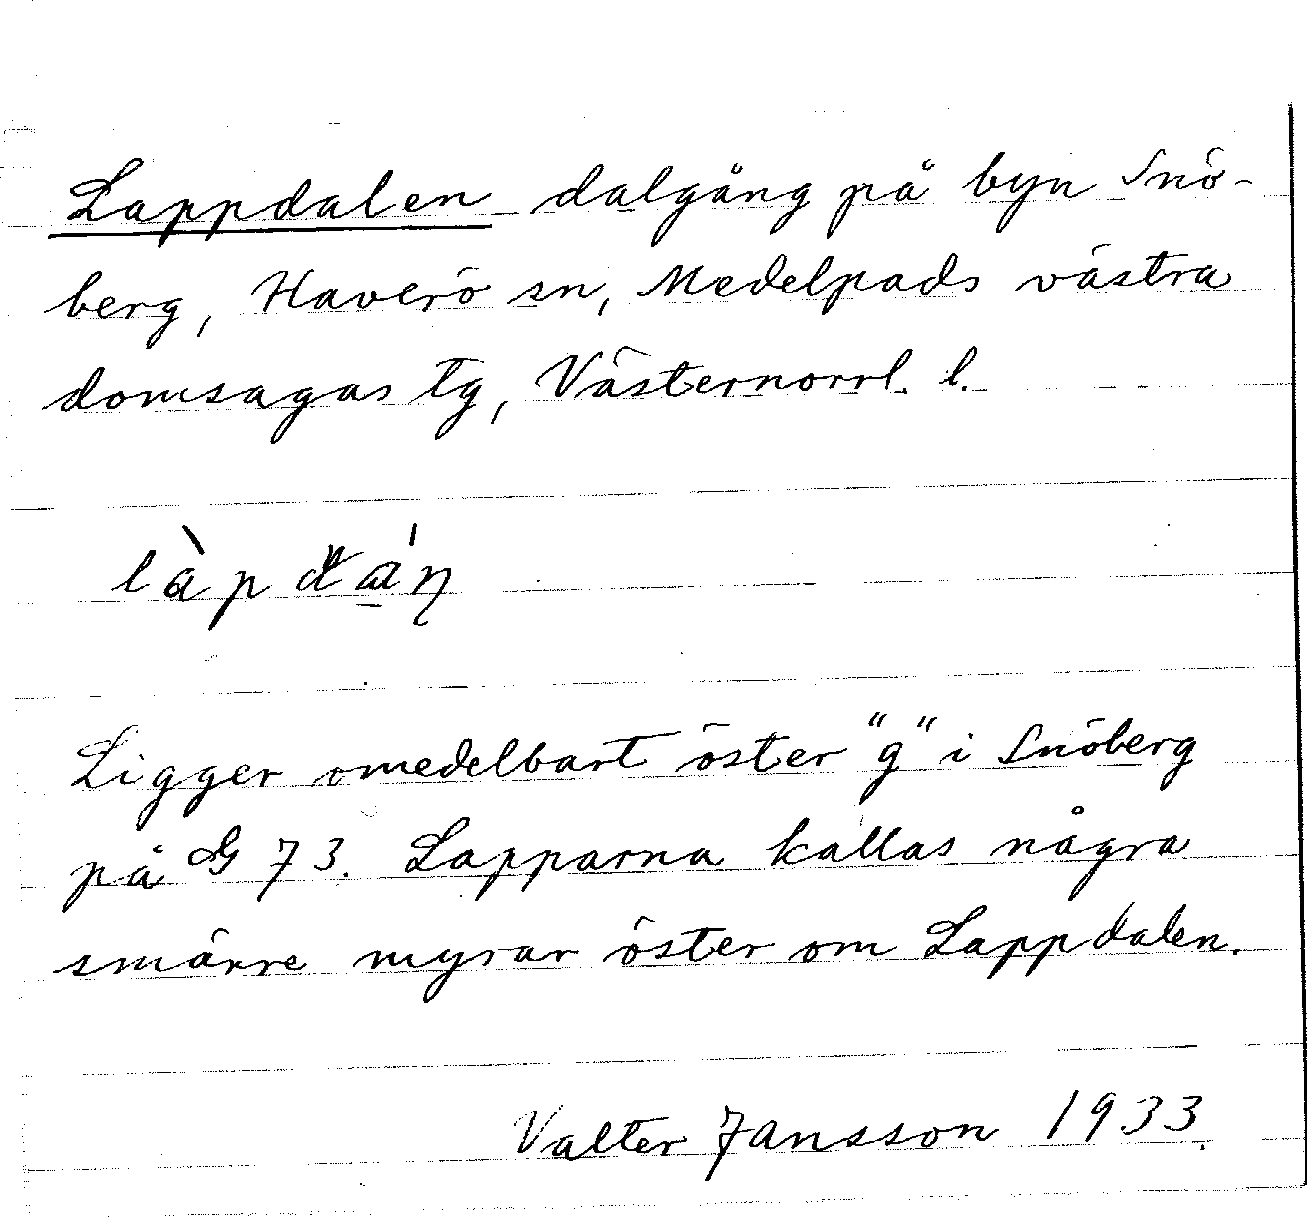 Lappdalen dalgång på byn Snö-
berg, Haverö sn, Medelpads västra
domsagas tg, Västernorrl. l.
Ligger omedelbart öster "g" i Snöberg
på G 73. Lapparna kallas några
smärre myrar öster om Lappdalen.
Valter Jansson 1933.